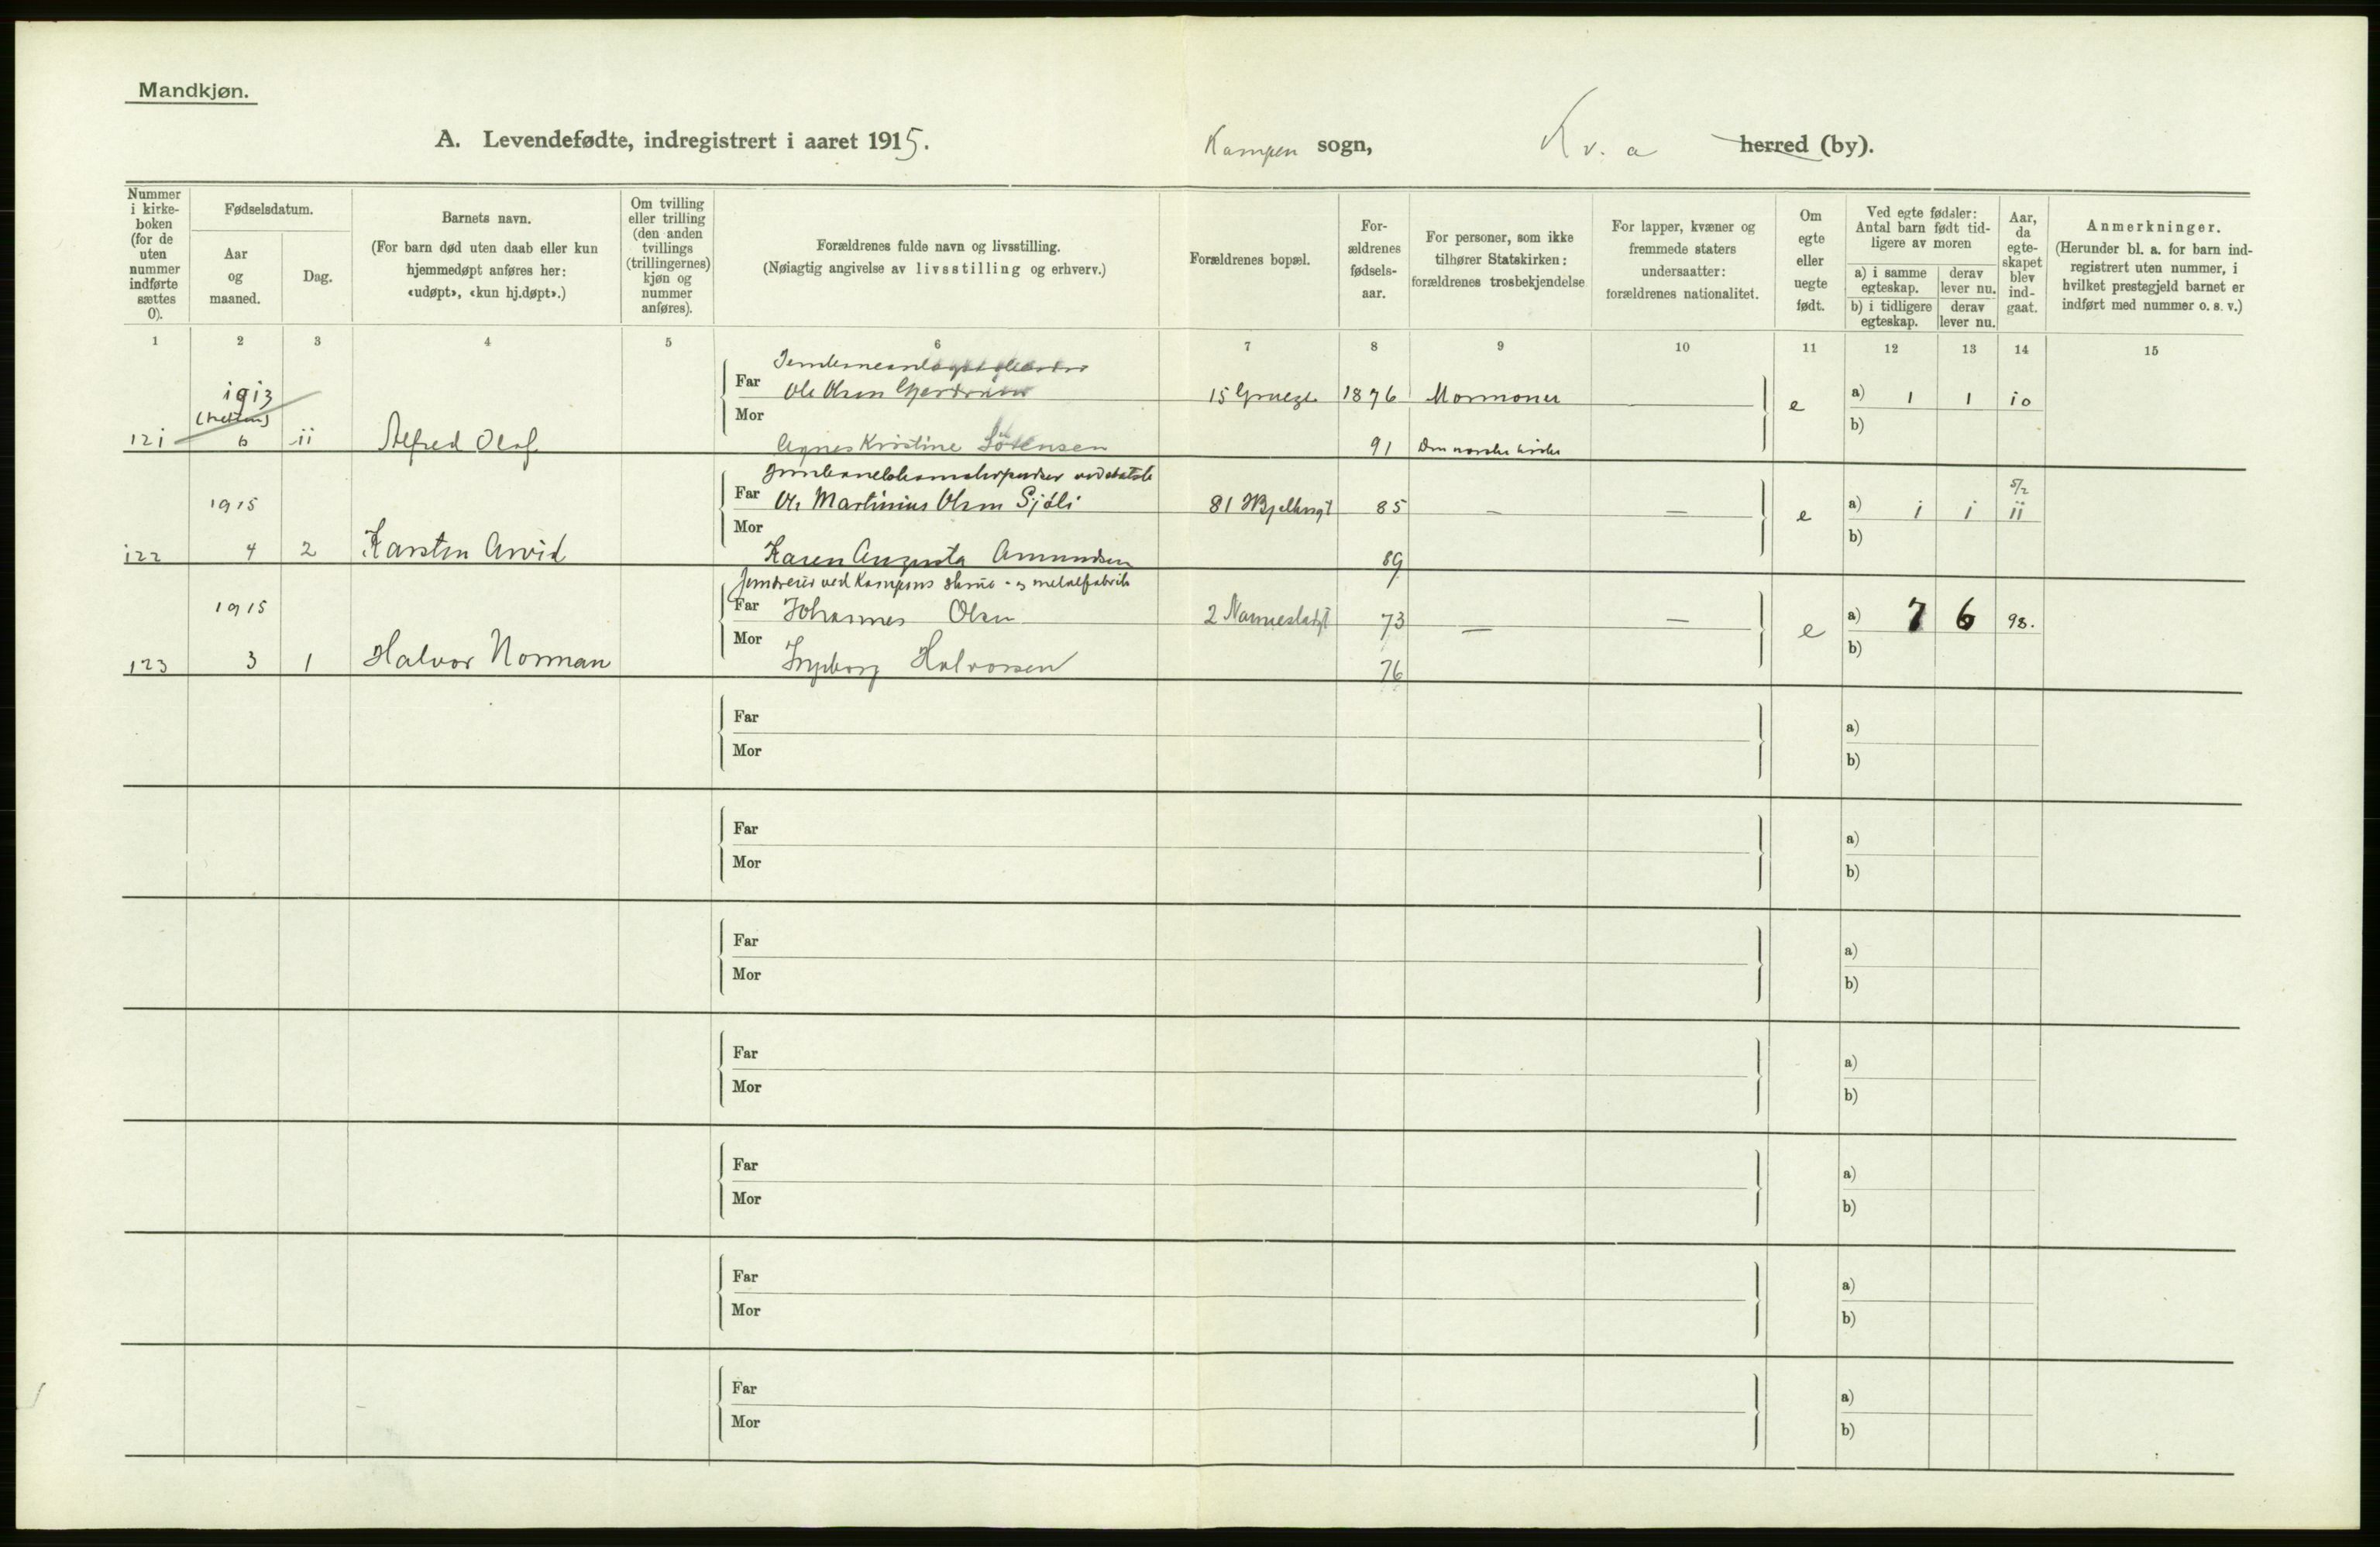 Mandkjøn.
A. Levendefødte, indregistrert i aaret 1915.
Kampen sogn, Kr. a herred (by).
Nummer i kirke- boken (for de uten nummer indførte sættes 0).
Fødselsdatum.
Aar og maaned.
Dag.
Barnets navn.
(For barn død uten daab eller kun hjemmedøpt anføres her: «udøpt», «kun hj.døpt».)
Om tvilling eller trilling (den anden tvillings (trillingernes) kjøn og nummer anføres).
Forældrenes fulde navn og livsstilling.
(Nøiagtig angivelse av livsstilling og erhverv.)
Forældrenes bopæl.
For- ældrenes fødsels- aar.
For personer, som ikke tilhører Statskirken: forældrenes trosbekjendelse
For lapper, kvæner og fremmede staters undersaatter: forældrenes nationalitet.
Om egte eller uegte født.
Ved egte fødsler: Antal barn født tid- ligere av moren
a) i samme egteskap.
derav lever nu.
b) i tidligere egteskap.
derav lever nu.
Aar, da egte- skapet blev ind- gaat.
Anmerkninger.
(Herunder bl. a. for barn ind- registrert uten nummer, i hvilket prestegjeld barnet er indført med nummer o. s. v.)
1 2 3 4 5 6 7 8 9 10 11 12 13 14 15
1913
Far Ole Olsen 15 1876 Mormoner e a) 1 1 10
Mor b)
121 6 11 Alfred Olof Agnes Kristine Sörensen 91 Den norske kirke
1915
Far Ole Martinius Olsen Sjöli 81 85 — — e a) 1 1 5/2 11
Mor b)
122 4 2 Karsten Arvid Karen Augusta Amundsen 89
ved Kampens skrue- og metalfabrik
1915
Far Johannes Olsen 2 73 — — e a) 7 6 98.
Mor b)
123 3 1 Halvor Norman Ingeborg Halvorsen 76
Far a)
Mor b)
Far a)
Mor b)
Far a)
Mor b)
Far a)
Mor b)
Far a)
Mor b)
Far a)
Mor b)
Far a)
Mor b)